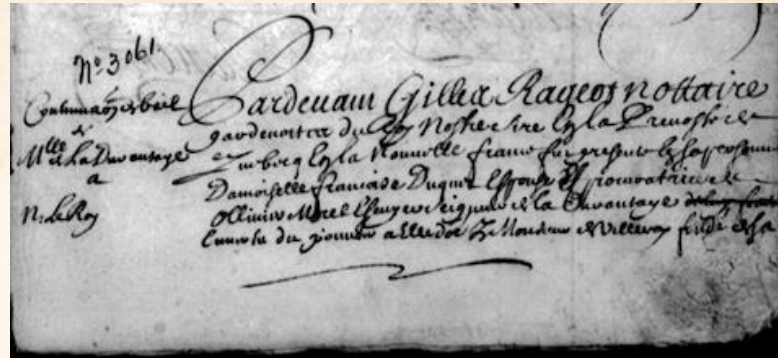 No 3061.
Continuaon de bail
de
Mlle de La Durantaye
a
N: Le Roy
Pardevant Gilles Rageot nottaire
gardenottes du Roy Nostre sire en la Prevosté de
Quebecq en la Nouvelle france fut presente en sa personne
Damoiselle francoise Duquet Espouse et procuratrice de
Ollivier Morel Escuyer Seigneur de la Durantaye
du pouvoir a elle de Monsieur de Villeray de sa